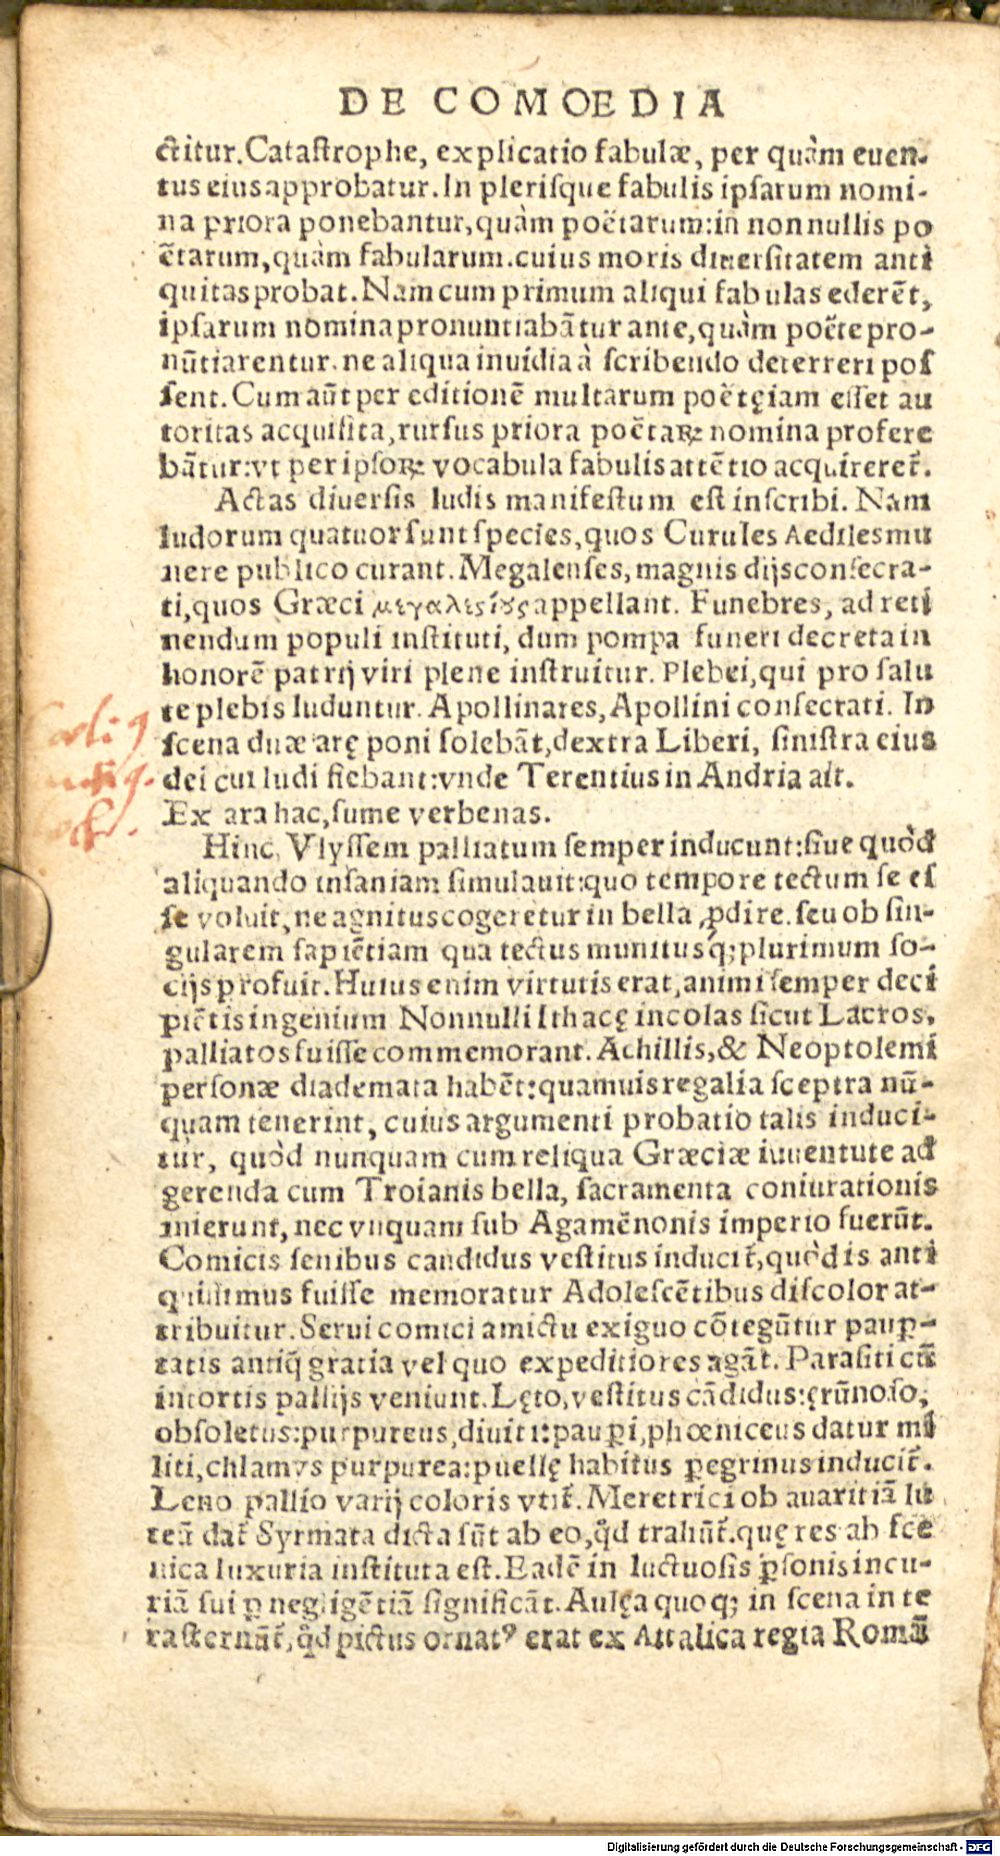 DE COMOEDIA
ctitur. Catastrophe, explicatio fabulæ, per quàm euen-
tus eius approbatur. In plerisque fabulis ipsarum nomi-
na priora ponebantur, quàm poëtarum: in nonnullis po
ëtarum, quàm fabularum. cuius moris diuersitatem anti
quitas probat. Nam cum primum aliqui fabulas ederẽt,
ipsarum nomina pronuntiabãtur ante, quàm poëte pro-
nũtiarentur. ne aliqua inuidia à scribendo deterreri pos
sent. Cum aũt per editionẽ multarum poëtę iam esset au
toritas acquisita, rursus priora poëtaꝝ nomina profere
bãtur: vt per ipsoꝝ vocabula fabulis attẽtio acquireret̃.
Actas diuersis ludis manifestum est inscribi. Nam
ludorum quatuor sunt species, quos Curules Aediles mu
nere publico curant. Megalenses, magnis dijs consecra-
ti, quos Græci μεγαλεσίους appellant. Funebres, ad reti
nendum populi instituti, dum pompa funeri decreta in
honorẽ patrij viri plene instruitur. Plebei, qui pro salu
te plebis luduntur. Apollinares, Apollini consecrati. In
scena duæ arę poni solebãt, dextra Liberi, sinistra eius
dei cui ludi fiebant: vnde Terentius in Andria ait.
Ex ara hac, sume verbenas.
Hinc Vlyssem palliatum semper inducunt: siue quòd
aliquando insaniam simulauit: quo tempore tectum se es
se voluit, ne agnitus cogeretur in bella ꝓdire. seu ob sin-
gularem sapiẽtiam qua tectus munitusq́; plurimum so-
cijs profuit. Huius enim virtutis erat, animi semper deci
piẽtis ingenium Nonnulli Ithacę incolas sicut Lacros,
palliatos fuisse commemorant. Achillis, & Neoptolemi
personæ diademata habẽt: quamuis regalia sceptra nũ-
quam tenerint, cuius argumenti probatio talis induci-
tur, quòd nunquam cum reliqua Græciæ iuuentute ad
gerenda cum Troianis bella, sacramenta coniurationis
inierunt, nec vnquam sub Agamẽnonis imperio fuerũt.
Comicis senibus candidus vestitus inducit̃, quòd is anti
quissimus fuisse memoratur Adolescẽtibus discolor at-
tribuitur. Serui comici amictu exiguo cõtegũtur pauꝑ-
tatis antiq̃ gratia vel quo expeditiores agãt. Parasiti cũ
intortis pallijs veniunt. Lęto, vestitus cãdidus: ęrũnoso,
obsoletus: purpureus, diuiti: pauꝑi, phœniceus datur mi
liti, chlamys purpurea: puellę habitus ꝑegrinus inducit̃.
Leno pallio varij coloris vtit̃. Meretrici ob auaritiã lu
teũ dat̃ Syrmata dicta sũt ab eo, q̃d trahũt̃. quę res ab sce
nica luxuria instituta est. Eadẽ in luctuosis ꝑsonis incu-
riã sui ꝑ negligẽtiã significãt. Aulęa quoq; in scena in te
ra sternũt̃, q̃d pictus ornatꝰ erat ex Attalica regia Romã
Digitalisierung gefördert durch die Deutsche Forschungsgemeinschaft - DFG